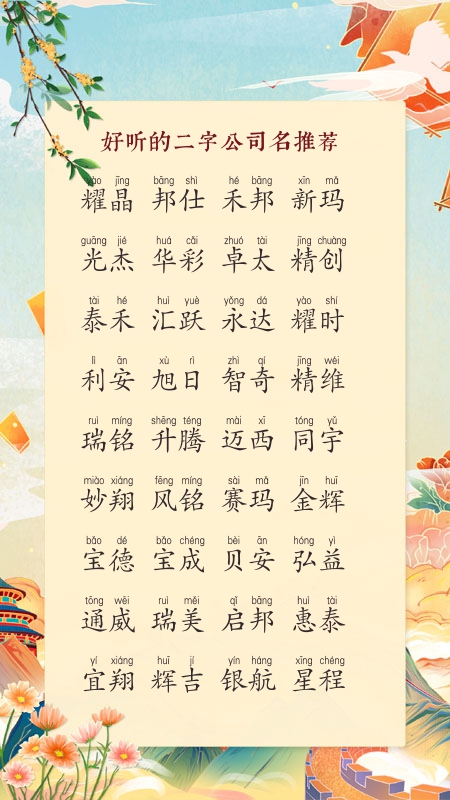 好听的二字公司名推荐
yào jīng bāng shì hé bāng xīn mǎ
耀晶 邦仕 禾邦 新玛
guāng jié huá cǎi zhuó tài jīng chuàng
光杰 华彩 卓太 精创
tài hé huì yuè yǒng dá yào shí
泰禾 汇跃 永达 耀时
lì ān xù rì zhì qí jīng wéi
利安 旭日 智奇 精维
ruì míng shēng téng mài xī tóng yǔ
瑞铭 升腾 迈西 同宇
miào xiáng fēng míng sài mǎ jīn huī
妙翔 风铭 赛玛 金辉
bǎo dé bǎo chéng bèi ān hóng yì
宝德 宝成 贝安 弘益
tōng wēi ruì měi qǐ bāng huì tài
通威 瑞美 启邦 惠泰
yí xiáng huī jí yín háng xīng chéng
宜翔 辉吉 银航 星程